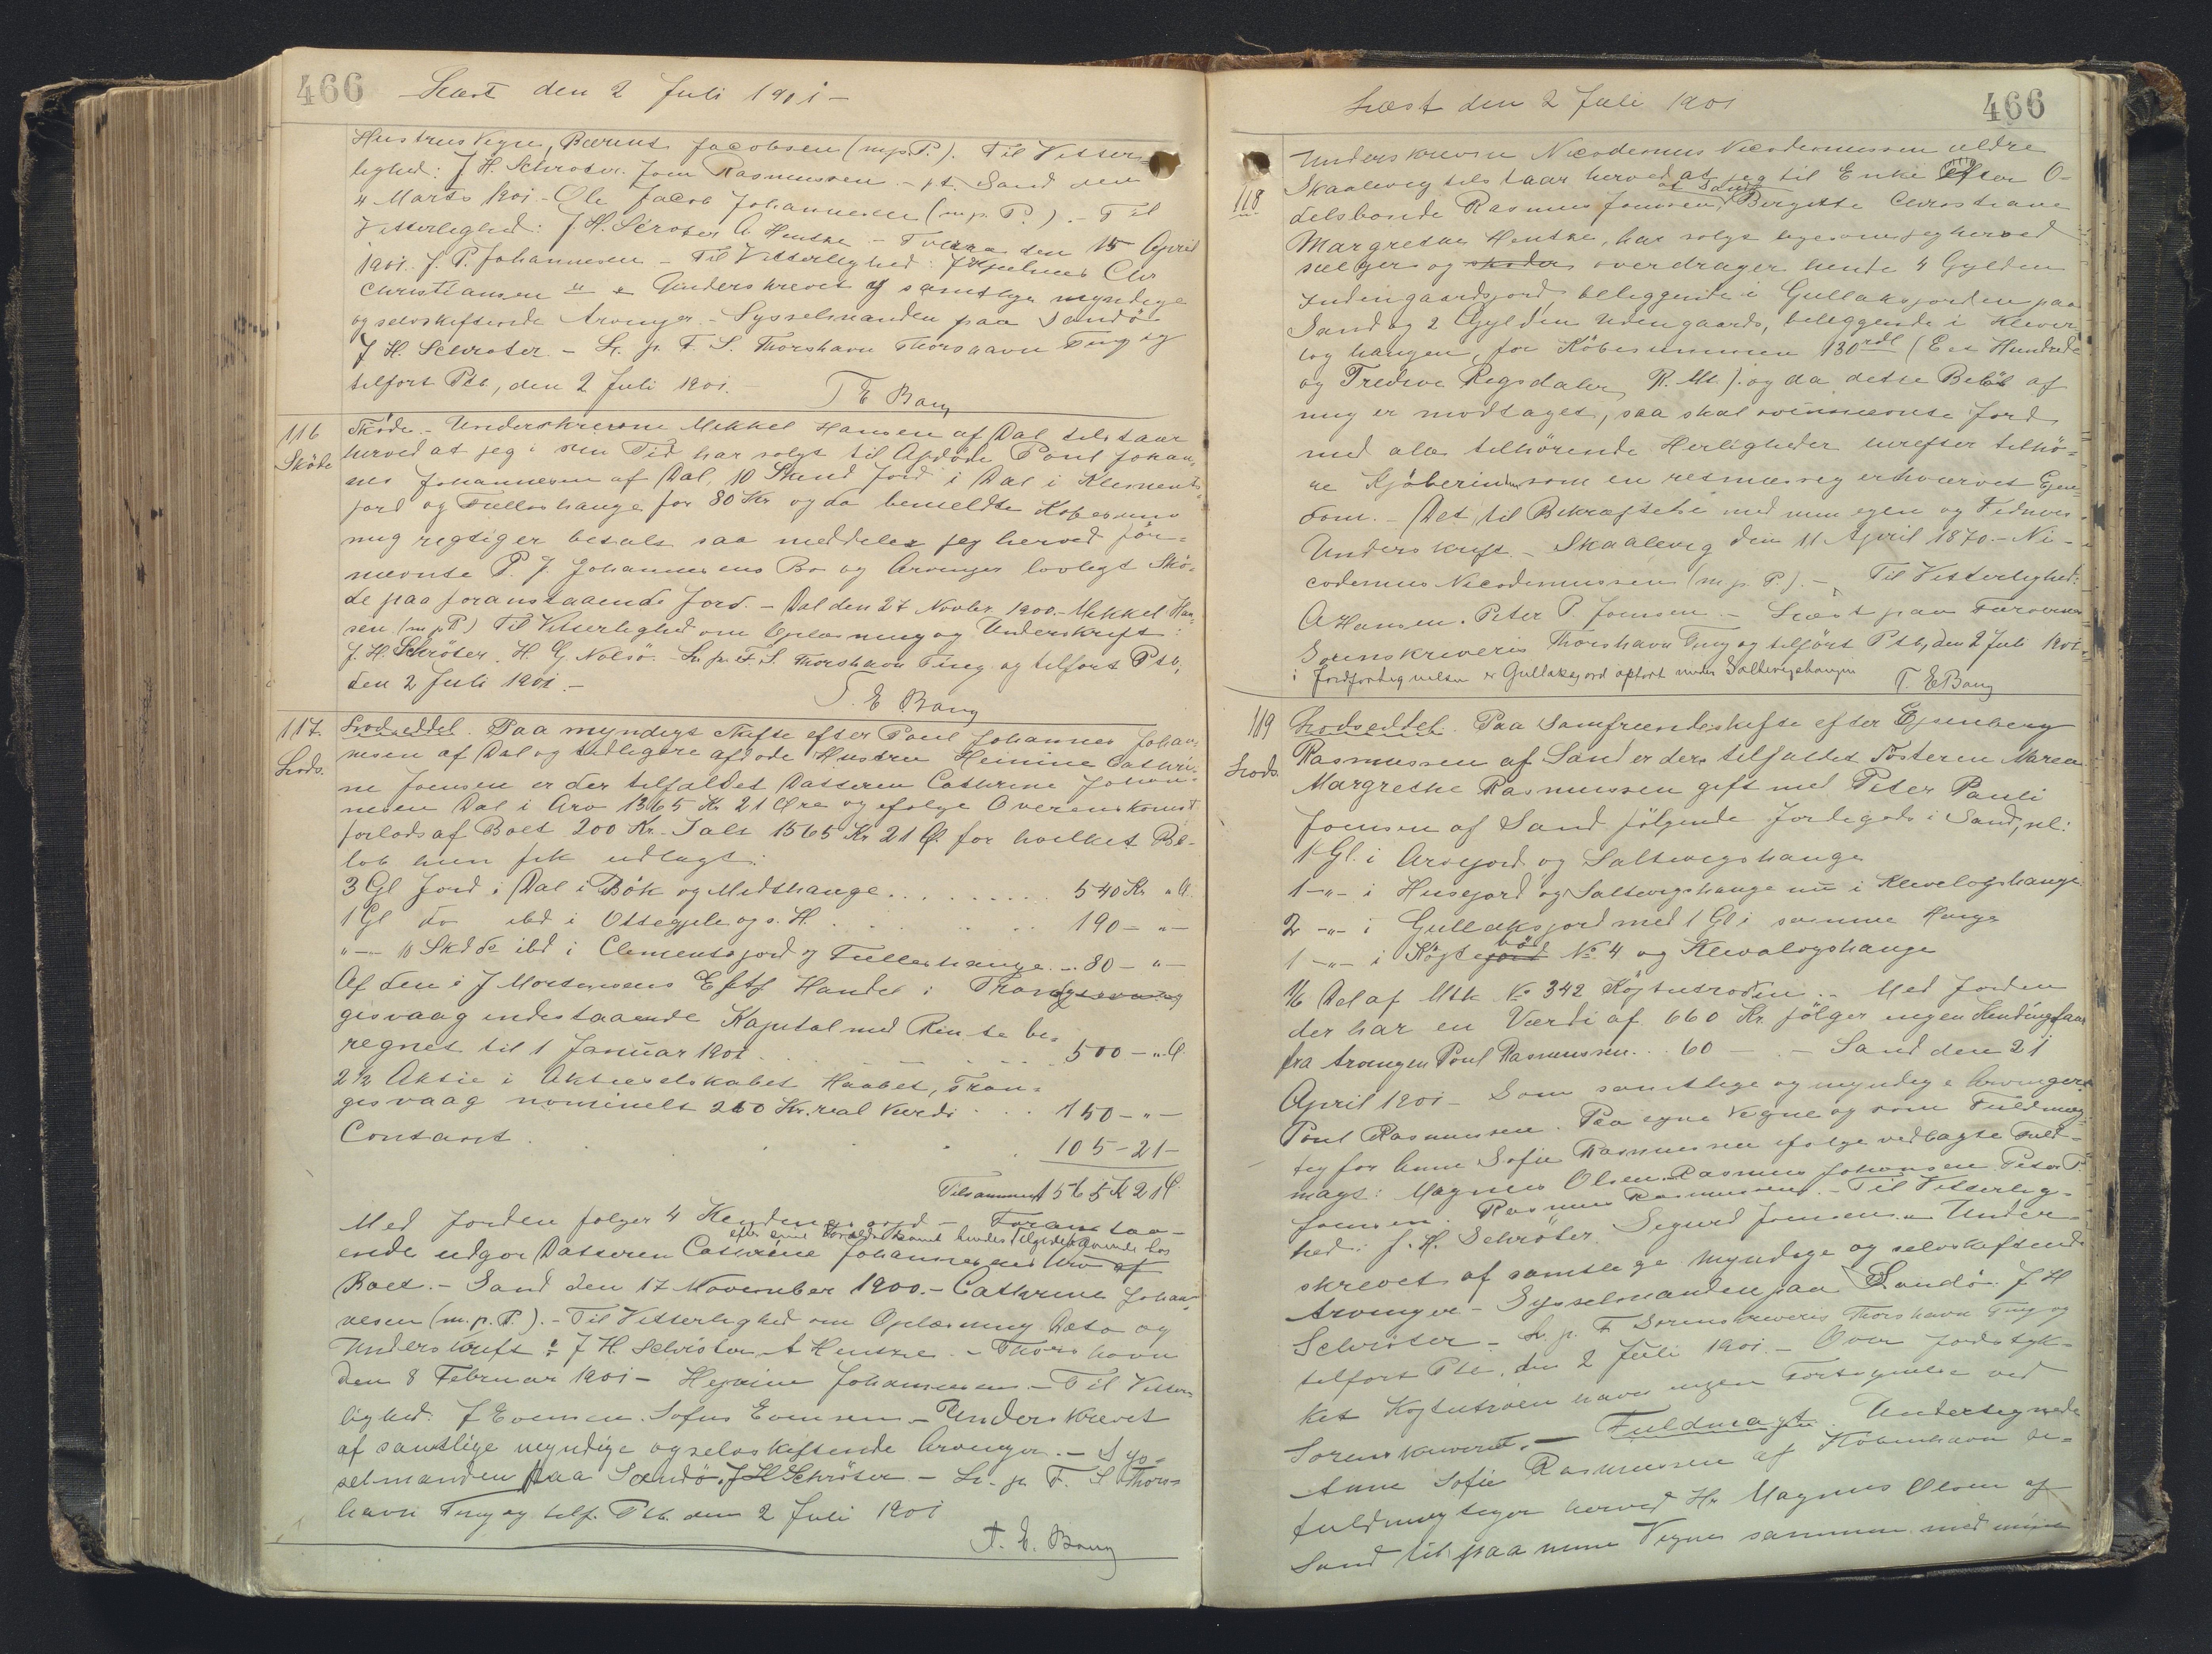 466 Læst den 2 Juli 1901 -
Hustrus Vegne, Bærent Jacobsen (m.p.P.). Til Vitter-
lighed: J. H. Schrøter. Joen Rasmussen - pt. Sand den
4 Marts 1901. - Ole Jacob Johannesen (m.p. P.). - Til
Vitterlighed: J. H. Scrøter A Hentze - den 15 April
1901. J. P. Johannesen - Til Vitterlighed: J Chr
Christiansen Underskrevet af samtlige myndige
og selvskiftende Arvinger. - Sysselmanden paa Sandö
J H. Schrøter - L. p. F. S. Thorshavn Thorshavn Ting og
tilført Ptb, den 2 Juli 1901. -
T E Bang
116
Sköde
Sköde. - Underskrevne Mikkel Hansen af Dal tilstaar
herved at jeg i sin Tid har solgt til Afdöde Poul Johan-
nes Johannesen af Dal, 10 Skind Jord i Dal i Klements-
jord og Fulleshange for 80 Kr og da bemeldte Købesum
mig rigtig er betalt saa meddeler jeg herved för-
nævnte P. J. Johannesens Bo og Arvinger lovligt Skö-
de paa foranstaaende Jord. - Dal den 27 Novbr. 1900. - Mikkel Han-
sen (m p P) Til Vitterlighed om Oplæsning og Underskrift:
J. H. Schröter. H. G. Nolsö. - L. p. F. S. Thorshavn Ting og tilført Ptb,
den 2 Juli 1901. -
T. E Bang
117.
Lods.
Lodseddel. Paa myndigt Skifte efter Poul Johannes Johan-
nesen af Dal og tidligere afdøde Hustru Heinine Cathri-
ne Joensen er der tilfaldet Datteren Cathrine Johan-
nesen Dal i Arv 1365 Kr 21 Øre og ifølge Overenskomst
forlods af Boet 200 Kr. - Ialt 1565 Kr 21 Ø. for hvilket Be-
løb hun fik udlagt:
3 Gl Jord i Dal i Bök og Midthange . . . . . . . . . 540 Kr. " Ø.
1 Gl do ibd i Ottegjele og s. H. . . . . . 190 - " -
" - 10 Skd do ibd i Clementsjord og Fulleshange. - . 80 - " -
Af den i J Mortensens Eftf Handel i
gisvaag indestaaende Kapital med Rente be-
regnet til 1 Januar 1901 . . . . . 500 - " Ø
2½ Aktie i Aktieselskabet Haabet, Tran-
gisvaag nominelt 250 Kr. real Værdi . . . 150 - " -
Contant . . . . . 105 - 21 -
Tilsammen 1565 Kr 21 Ø
Med Jorden følger 4 - Foranstaa-
efter hendes Tilgodehavende hos
ende udgør Datteren Cathrine Johannesens Arv af
Boet. - Sand den 17 November 1900. - Cathrine Johan-
nesen (m. p. P.). - Til Vitterlighed om Oplæsning Dato og
Underskrift: J H Schröter A Hentze. - Thorshavn
den 8 Februar 1901 - Hejnine Johannesen - Til Vitter-
lighed: J Evensen. Sofus Evensen - Underskrevet
af samtlige myndige og selvskiftende Arvinger. - Sys-
selmanden paa Sandö. J H Schröter. - L. p. F. S. Thors-
havn Ting og tilf. Ptb. den 2 Juli 1901
T. E. Bang
Læst den 2 Juli 1901 466
118
Underskrevne Nicodemus Nicodemussen ældre
Skaalevig tilstaar herved at jeg til Enke efter O-
af Sand
delsbonde Rasmus Joensen, Birgitte Christiane
Margrethe Hentze, har solgt ligesom jeg herved
sælger og skøder overdrager hende 4 Gylden
Indengaardsjord beliggende i Gullaksjorden paa
Sand og 2 Gylden Udengaards, beliggende i Klever-
loghangen, for Köbesummen 130 rdl (Eet Hundrede
og Tredive Rigsdaler R. Mt.) og da dette Belöb af
mig er modtaget, saa skal ovennævnte Jord
med alle tilhörende Herligheder herefter tilhö-
re Kjöberinden som en retmæssig erhvervet Ejen-
dom. - Det til Bekræftelse med min egen og Vidners
Underskrift. - Skaalevig den 11 April 1870. - Ni-
codemus Nicodemussen (m. p. P.). - Til Vitterlighed:
A Hansen. Peter P. Joensen. - Læst paa Færøernes
Sorenskriveris Thorshavn Ting og tilført Ptb, den 2 Juli 1901.
i Jordfortegnelsen er Gullaksjord opført under Saltevigshangen T. E Bang
119
Lods.
Lodseddel. Paa Samfrændeskifte efter Ejsenberg
Rasmussen af Sand er der tilfaldet Søsteren Maren
Margrethe Rasmussen gift med Peter Pauli
Joensen af Sand fölgende Jordegods i Sand, nl:
1 Gl. i Arvejord og Saltevigshange
1 - " - i Husejord og Saltevigshange nu i Klevelogshange
2 - " - i Gullaksjord med 1 Gl i samme Hauge
böd
1 - " - i Köjtejord No 4 og Klevalogshange
1/6 Del af Mtk No 342 Köjtutroden. - Med Jorden
der har en Værdi af 660 Kr. fölger ingen
fra Arvingen Poul Rasmussen . . . 60 - . - Sand den 21
April 1901 - Som samtlige og myndige Arvinger:
Poul Rasmussen. Paa egne Vegne og som Fuldmæg-
tig for Anne Sofie Rasmussen ifølge vedlagte Fuld-
magt: Magnus Olsen. Rasmus Johansen. Peter P
Joensen. Rasmus Rasmussen. - Til Vitterlig-
hed: J. H. Schröter. Sigurd Joensen. Under-
skrevet af samtlige myndige og selvskiftende
Arvinger - Sysselmanden paa Sandö. J H
Schröter - L. p. F Sorenskriveris Thorshavn Ting og
tilført Ptb. den 2 Juli 1901. - Over Jordstyk-
ket Kojtutröen haves ingen Fortegnelse ved
Sorenskriveriet. - Fuldmagt. Undertegnede
Anne Sofie Rasmussen af Köbenhavn be-
fuldmægtiger herved Hr Magnus Olsen af
Sand til paa mine Vegne sammen med mine